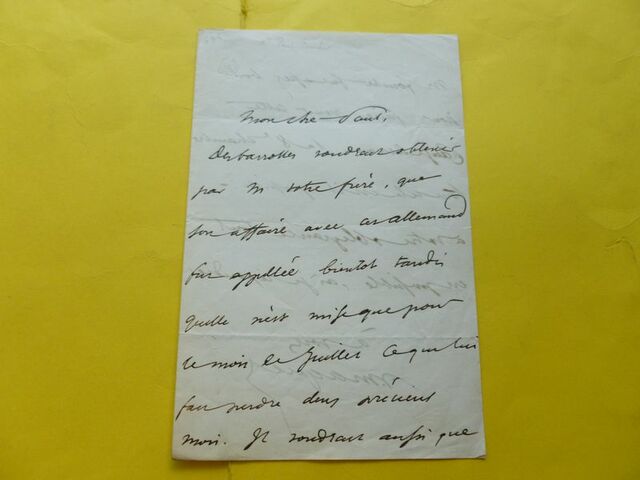 Mon cher Paul,
Desbarrolles voudrait obtenir
par M votre frère, que
son affaire avec cet allemand
fut appellée bientot tandis
quelle n'est mise que pour
le mois de Juillet ce qui lui
fait perdre deux précieux
mois. Il voudrait aussi que